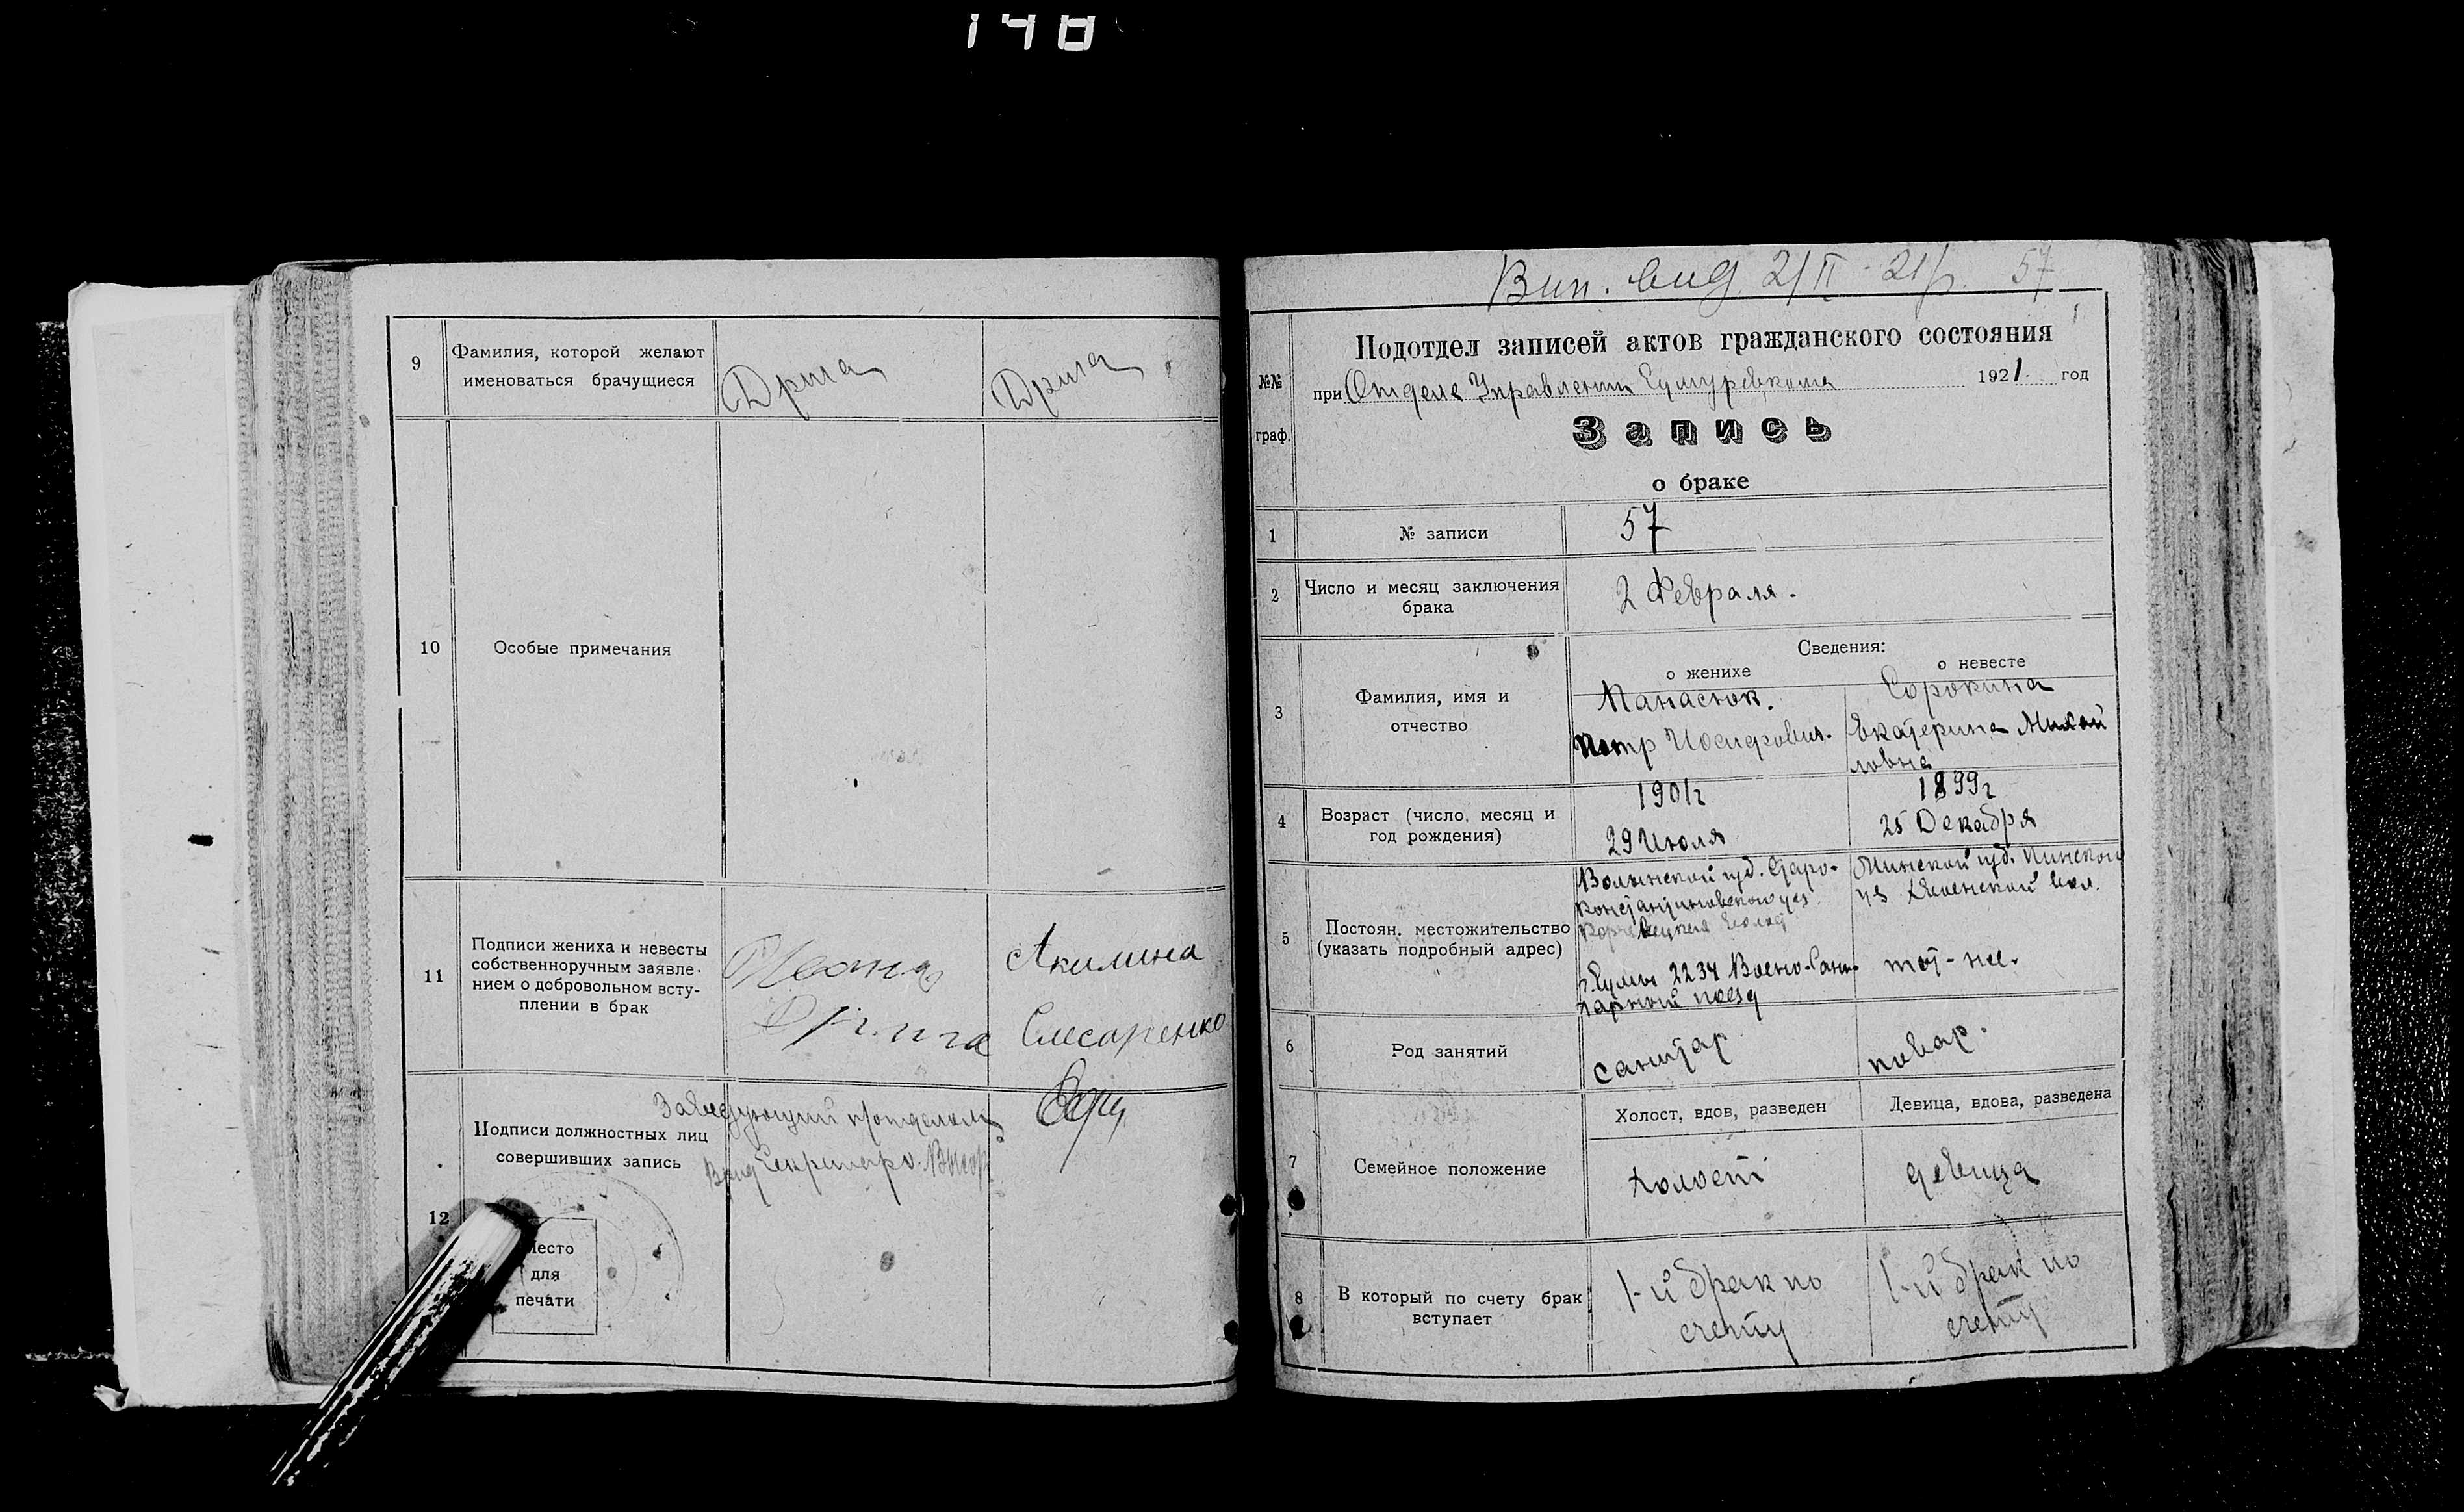 148
9
Фамилия, которой желают
именоваться брачущиеся
Дрига
Дрига
10
Особые примечания
11
Подписи жениха и невесты
собственноручным заявле-
нием о добровольном всту-
плении в брак
Дрига
Акилина
Слесаренко
12
Подписи должностных лиц
совершивших запись
Заведующий п/отделом
Секретарь
Место
для
печати
Вип. вид. 2/II 21 р. 57
№№
граф.
Подотдел записей актов гражданского состояния
при Отделе Управления 1921 год
Запись
о браке
1
№ записи
57
2
Число и месяц заключения
брака
2 Февраля.
Сведения:
о женихе
о невесте
3
Фамилия, имя и
отчество
Панасюк.
Петр Иосифович.
Сорокина
Екатерина Михай
ловна
4
Возраст (число, месяц и
год рождения)
1901 г
29 Июля
1899 г
25 Декабря
5
Постоян. местожительство
(указать подробный адрес)
Волынской губ. Старо-
константиновского уез.
г. Сумы 2234 Военно-Сани-
тарный поезд
Минской губ. Пинского
уез вол.
тот-же.
6
Род занятий
санитар
повар.
7
Семейное положение
Холост, вдов, разведен
Девица, вдова, разведена
холост
девица
8
В который по счету брак
вступает
1-й брак по
счету
1-й брак по
счету